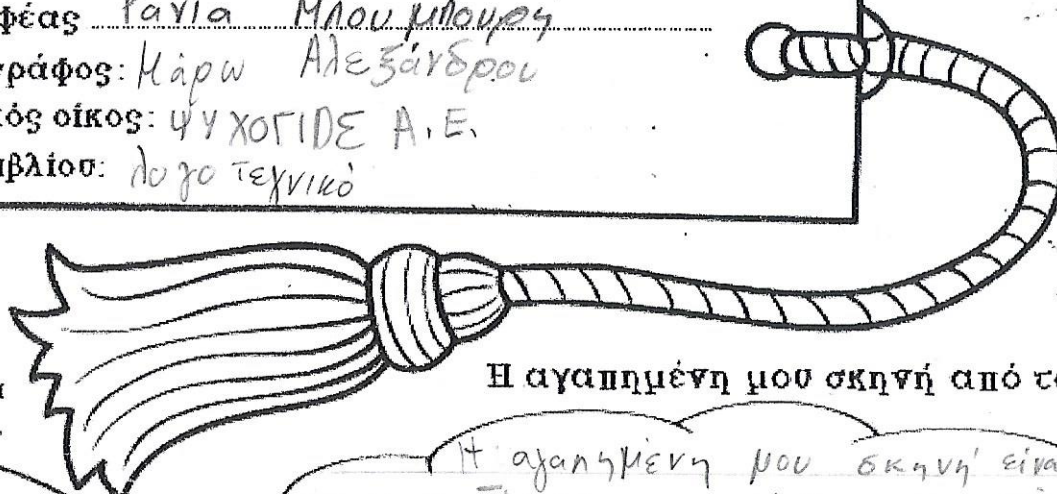 φέας Τάνια Μπουμπουρη
γράφος: Μάρω Αλεξάνδρου
κός οίκος: ΨΥΧΟΓΙΟΣ Α.Ε.
ιβλίου: λογοτεχνικό
Η αγαπημένη μου σκηνή από το
Η αγαπημένη μου σκηνή είνα